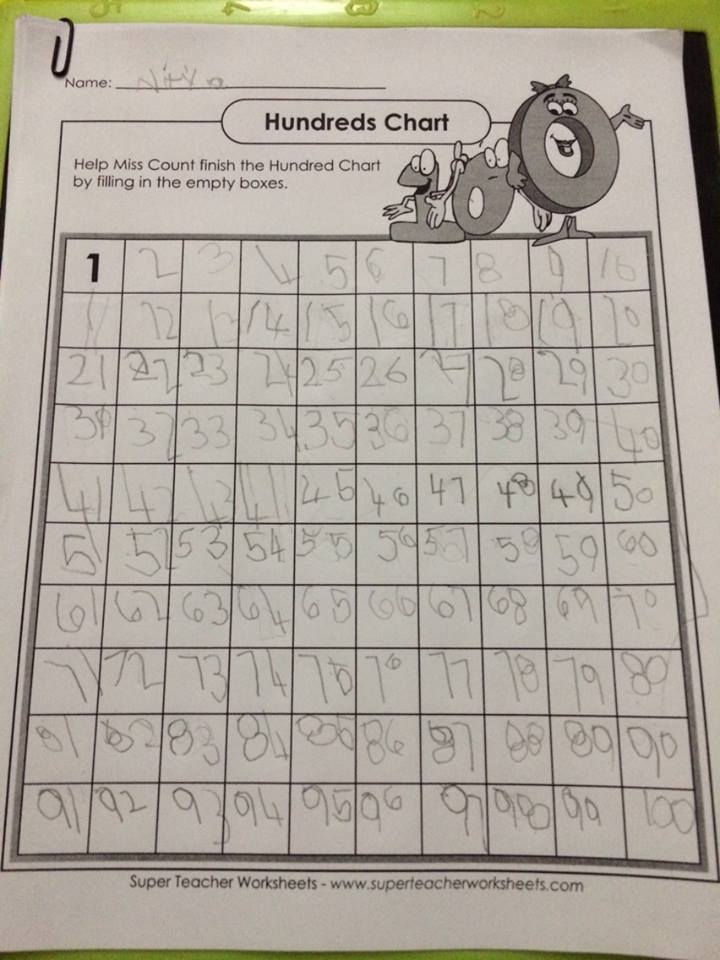 Name: Nitya
Hundreds Chart
Help Miss Count finish the Hundred Chart
by filling in the empty boxes.
1 2 3 4 5 6 7 8 9 10
11 12 13 14 15 16 17 18 19 20
21 22 23 24 25 26 27 28 29 30
31 32 33 34 35 36 37 38 39 40
41 42 43 44 45 46 47 48 49 50
51 52 53 54 55 56 57 58 59 60
61 62 63 64 65 66 67 68 69 70
71 72 73 74 75 76 77 78 79 80
81 82 83 84 85 86 87 88 89 90
91 92 93 94 95 96 97 98 99 100
Super Teacher Worksheets - www.superteacherworksheets.com